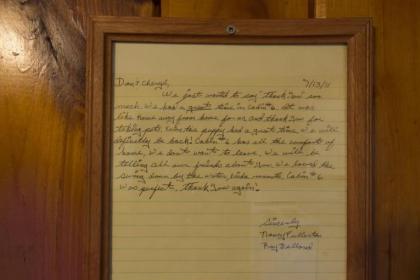 Don & Cheryl, 7/13/11
We just wanted to say "thank you" soo
much. We had a great time in Cabin #6. It was
like home away from home for us and thank you for
taking pets. the puppy had a great time. We will
definitely be back! Cabin #6 has all the comforts of
home. We don't want to leave. We will be
telling all our friends about you. We loved the
swing down by the water,
was perfect, thank you again!
Sincerely
Nancy